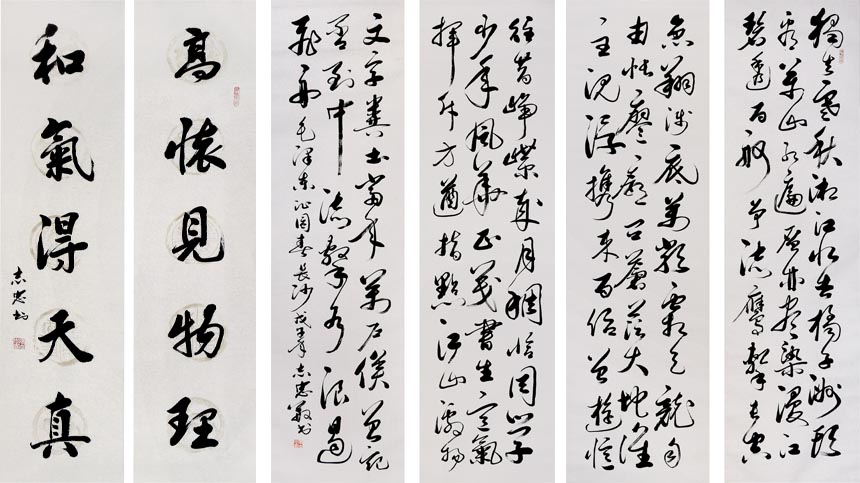 獨立寒秋湘江北去橘子洲頭
看萬山紅遍層林盡染漫江
碧透百舸爭流鷹擊長空
魚翔淺底萬類霜天競自
由悵寥廓問蒼茫大地誰
主沉浮攜來百侶曾遊憶
往昔崢嶸歲月稠恰同學
少年風華正茂書生意氣
揮斥方遒指點江山激揚
文字糞土當年萬戶侯曾記
否到中流擊水浪遏
飛舟毛澤東沁園春長沙戊子年志忠敬书
高懷見物理
和氣得天真
志忠书